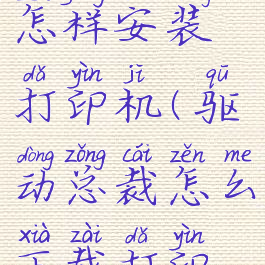 怎样安装
dǎ yìn jī qū
打印机(驱
dòng zǒng cái zěn me
动总裁怎么
xià zài dǎ yìn
下载打印